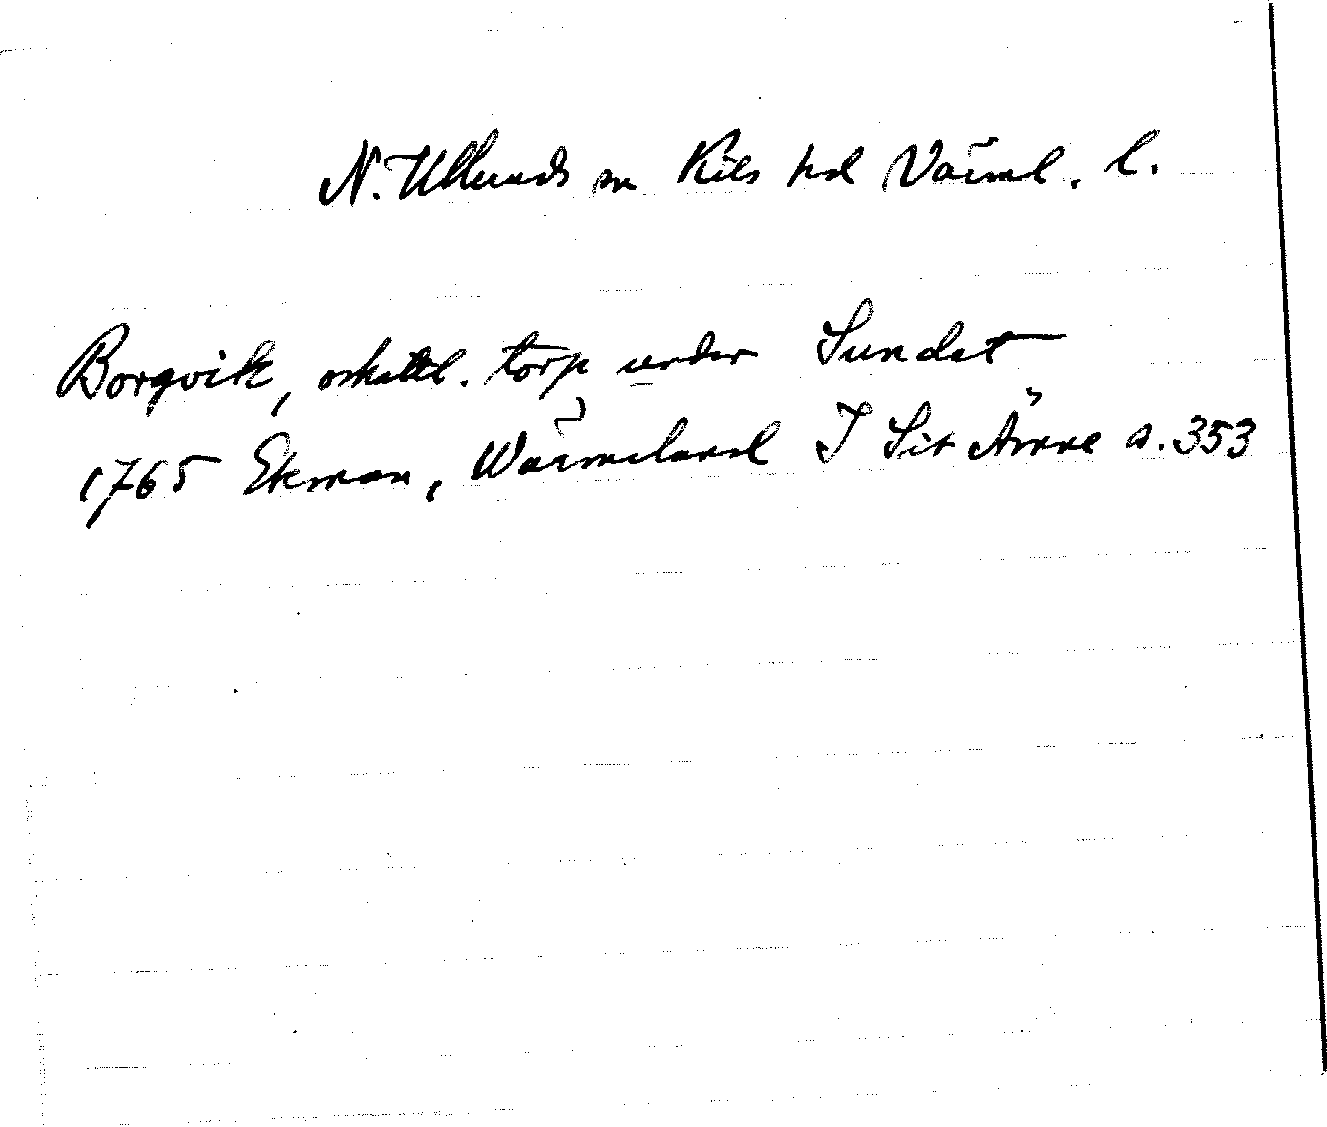 N. Ulleruds sn Kils hd Värml. l.
Borgvik, oskattl. torp under Sundet
1765 Ekman, Wärmeland I Sit Ämne s. 353